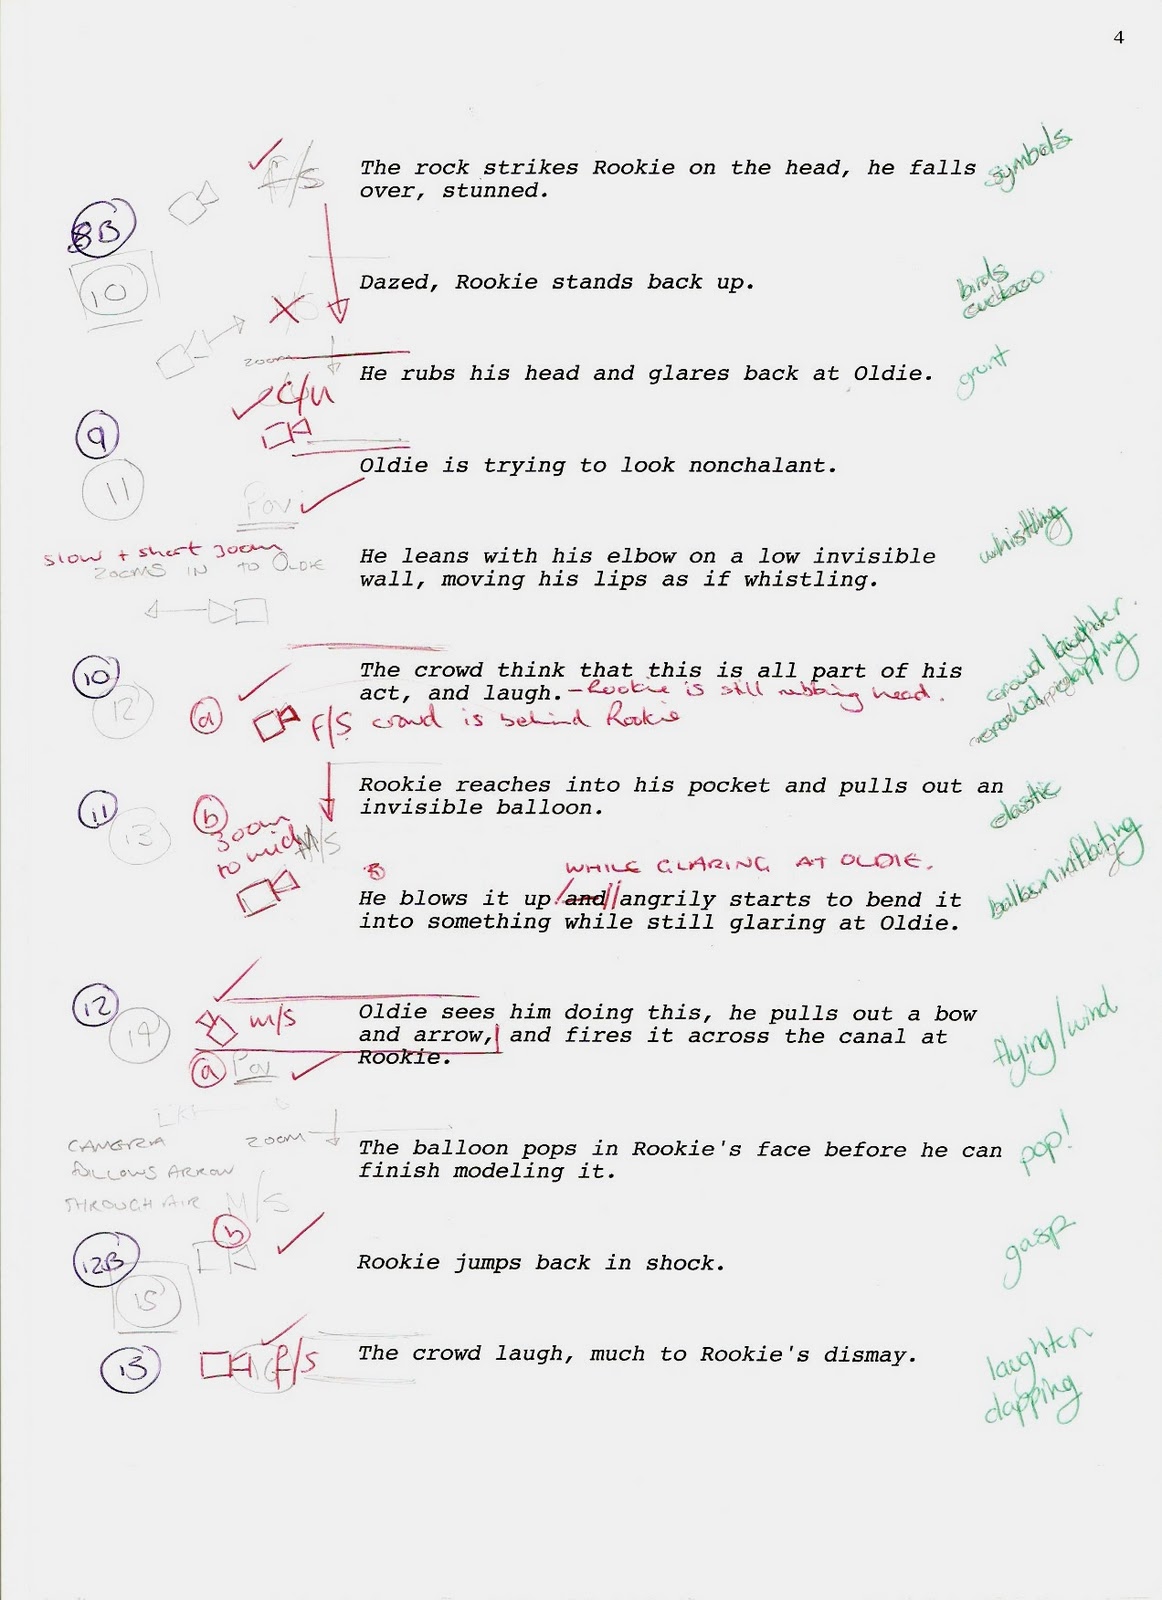 4
The rock strikes Rookie on the head, he falls
over, stunned.
symbols
F/S
8B
10
Dazed, Rookie stands back up.
birds
cuckooo
zoom
He rubs his head and glares back at Oldie.
grunt
C/U
9
11
Oldie is trying to look nonchalant.
Pov
slow + short zoom
ZOOMS IN TO OLDIE
He leans with his elbow on a low invisible
wall, moving his lips as if whistling.
whistling
10
12
The crowd think that this is all part of his
act, and laugh. - Rookie is still rubbing head.
a F/S crowd is behind Rookie
crowd laughter.
clapping
11
13
Rookie reaches into his pocket and pulls out an
invisible balloon.
elastic
b
zoom
to mid M/S
WHILE GLARING AT OLDIE.
He blows it up and angrily starts to bend it
into something while still glaring at Oldie.
balloon inflating
12
14
m/s
Oldie sees him doing this, he pulls out a bow
and arrow, and fires it across the canal at
Rookie.
flying/wind
a Pov
CAMERA
FOLLOWS ARROW
THROUGH AIR
ZOOM
M/S
The balloon pops in Rookie's face before he can
finish modeling it.
pop!
b
12B
15
Rookie jumps back in shock.
gasp
13
f/s
The crowd laugh, much to Rookie's dismay.
laughter
clapping